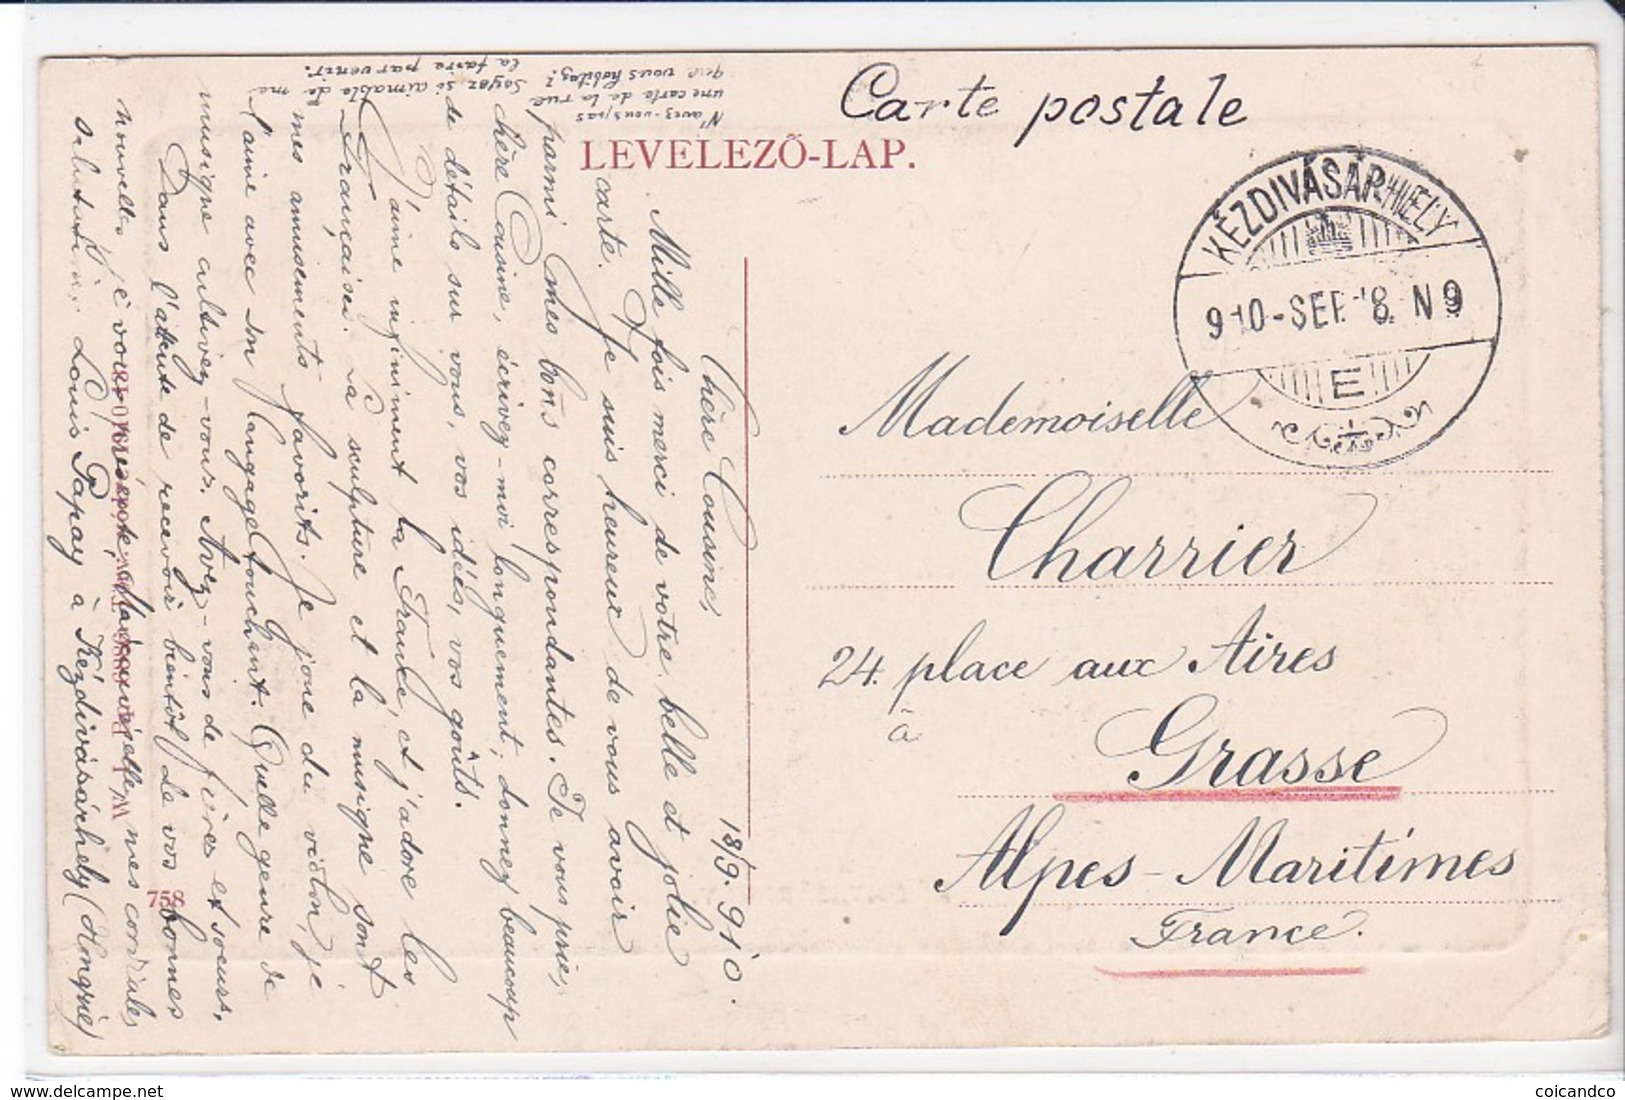 Carte postale
LEVELEZŐ-LAP.
KÉZDIVÁSÁRHELY
910-SEP. 18. N 9
E
Mademoiselle
Charrier
24. place aux Aires
à
Grasse
Alpes-Maritimes
France.
18/9. 910.
Chère Cousine,
Mille fois merci de votre belle et jolie
carte. Je suis heureux de vous avoir
parmi mes bons correspondantes. Je vous prie,
chère Cousine, écrivez-moi longuement, donnez beaucoup
de détails sur vous, vos idées, vos goûts.
J'aime infiniment la France, et j'adore les
Françaises. La sculpture et la musique sont
mes amusements favorits. Je joue du violon, je
l'aime avec son langage touchant. Quelle genre de
musique cultivez-vous. Avez-vous de frères et soeurs,
Dans l'attente de recevoir bientôt de vos bonnes
nouvelles je vous présente, Mademoiselle, mes cordiales
salutations Louis Papay à Kézdivásárhely (Hongrie)
N'avez-vous pas
une carte de la rue
que vous habitez?
Soyez si aimable de me
la faire parvenir.
758